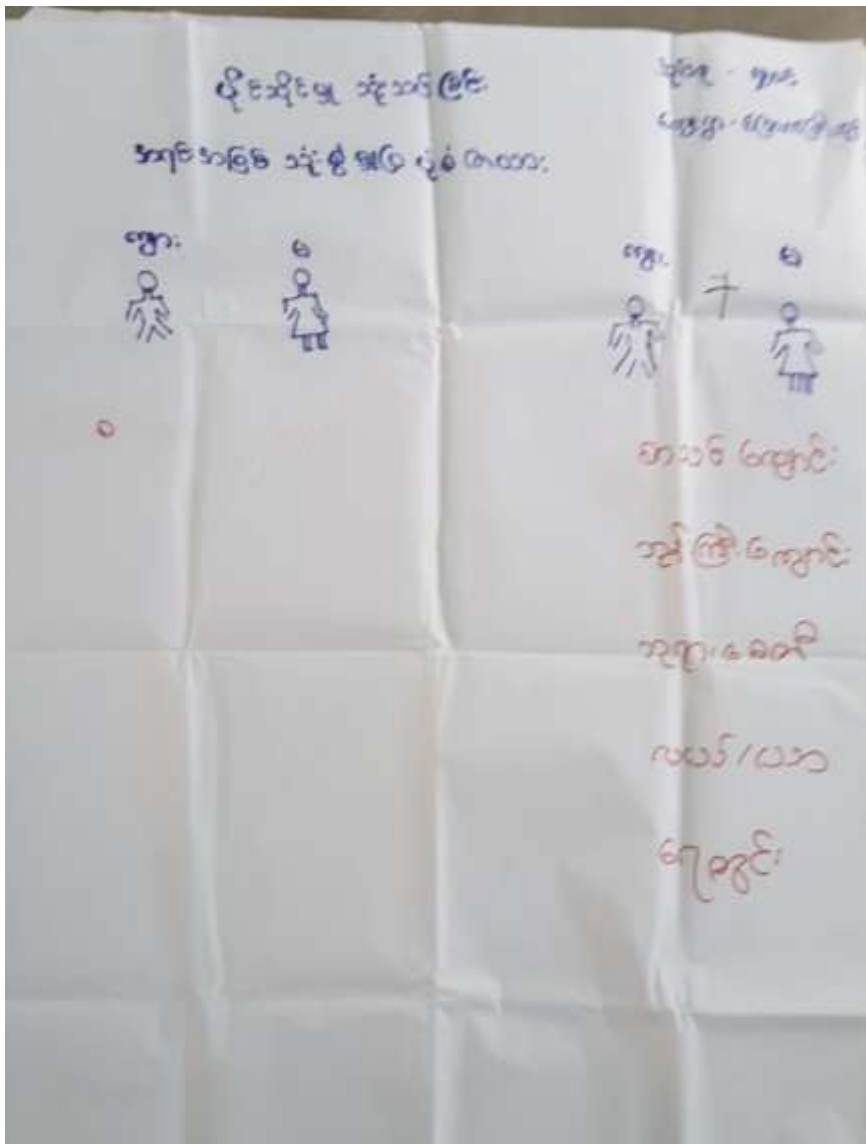 ပိုင်ဆိုင်မှု သုံးသပ်ခြင်း
အရင်းအမြစ် သုံးစွဲမှုပြ ပုံစံ ဇယား
ကျား မ
ကျား + မ
စ
စာသင် ကျောင်း
ဘုန်းကြီး ကျောင်း
ဘုရား စေတီ
လယ် / ယာ
ရေတွင်း